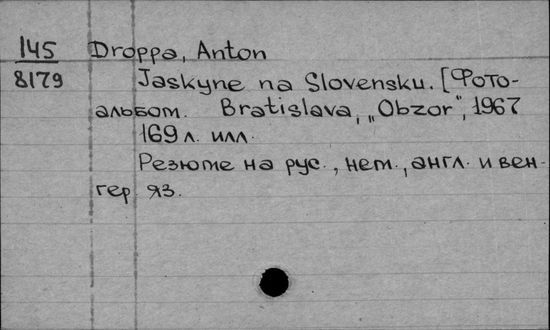 145 Droppa, Anton
8179 Jaskyne na Slovensku. [Фото-
альбом. Bratislava, „Obzor", 1967
169 л. илл.
Резюме на рус., нем., англ. и вен-
гер. яз.